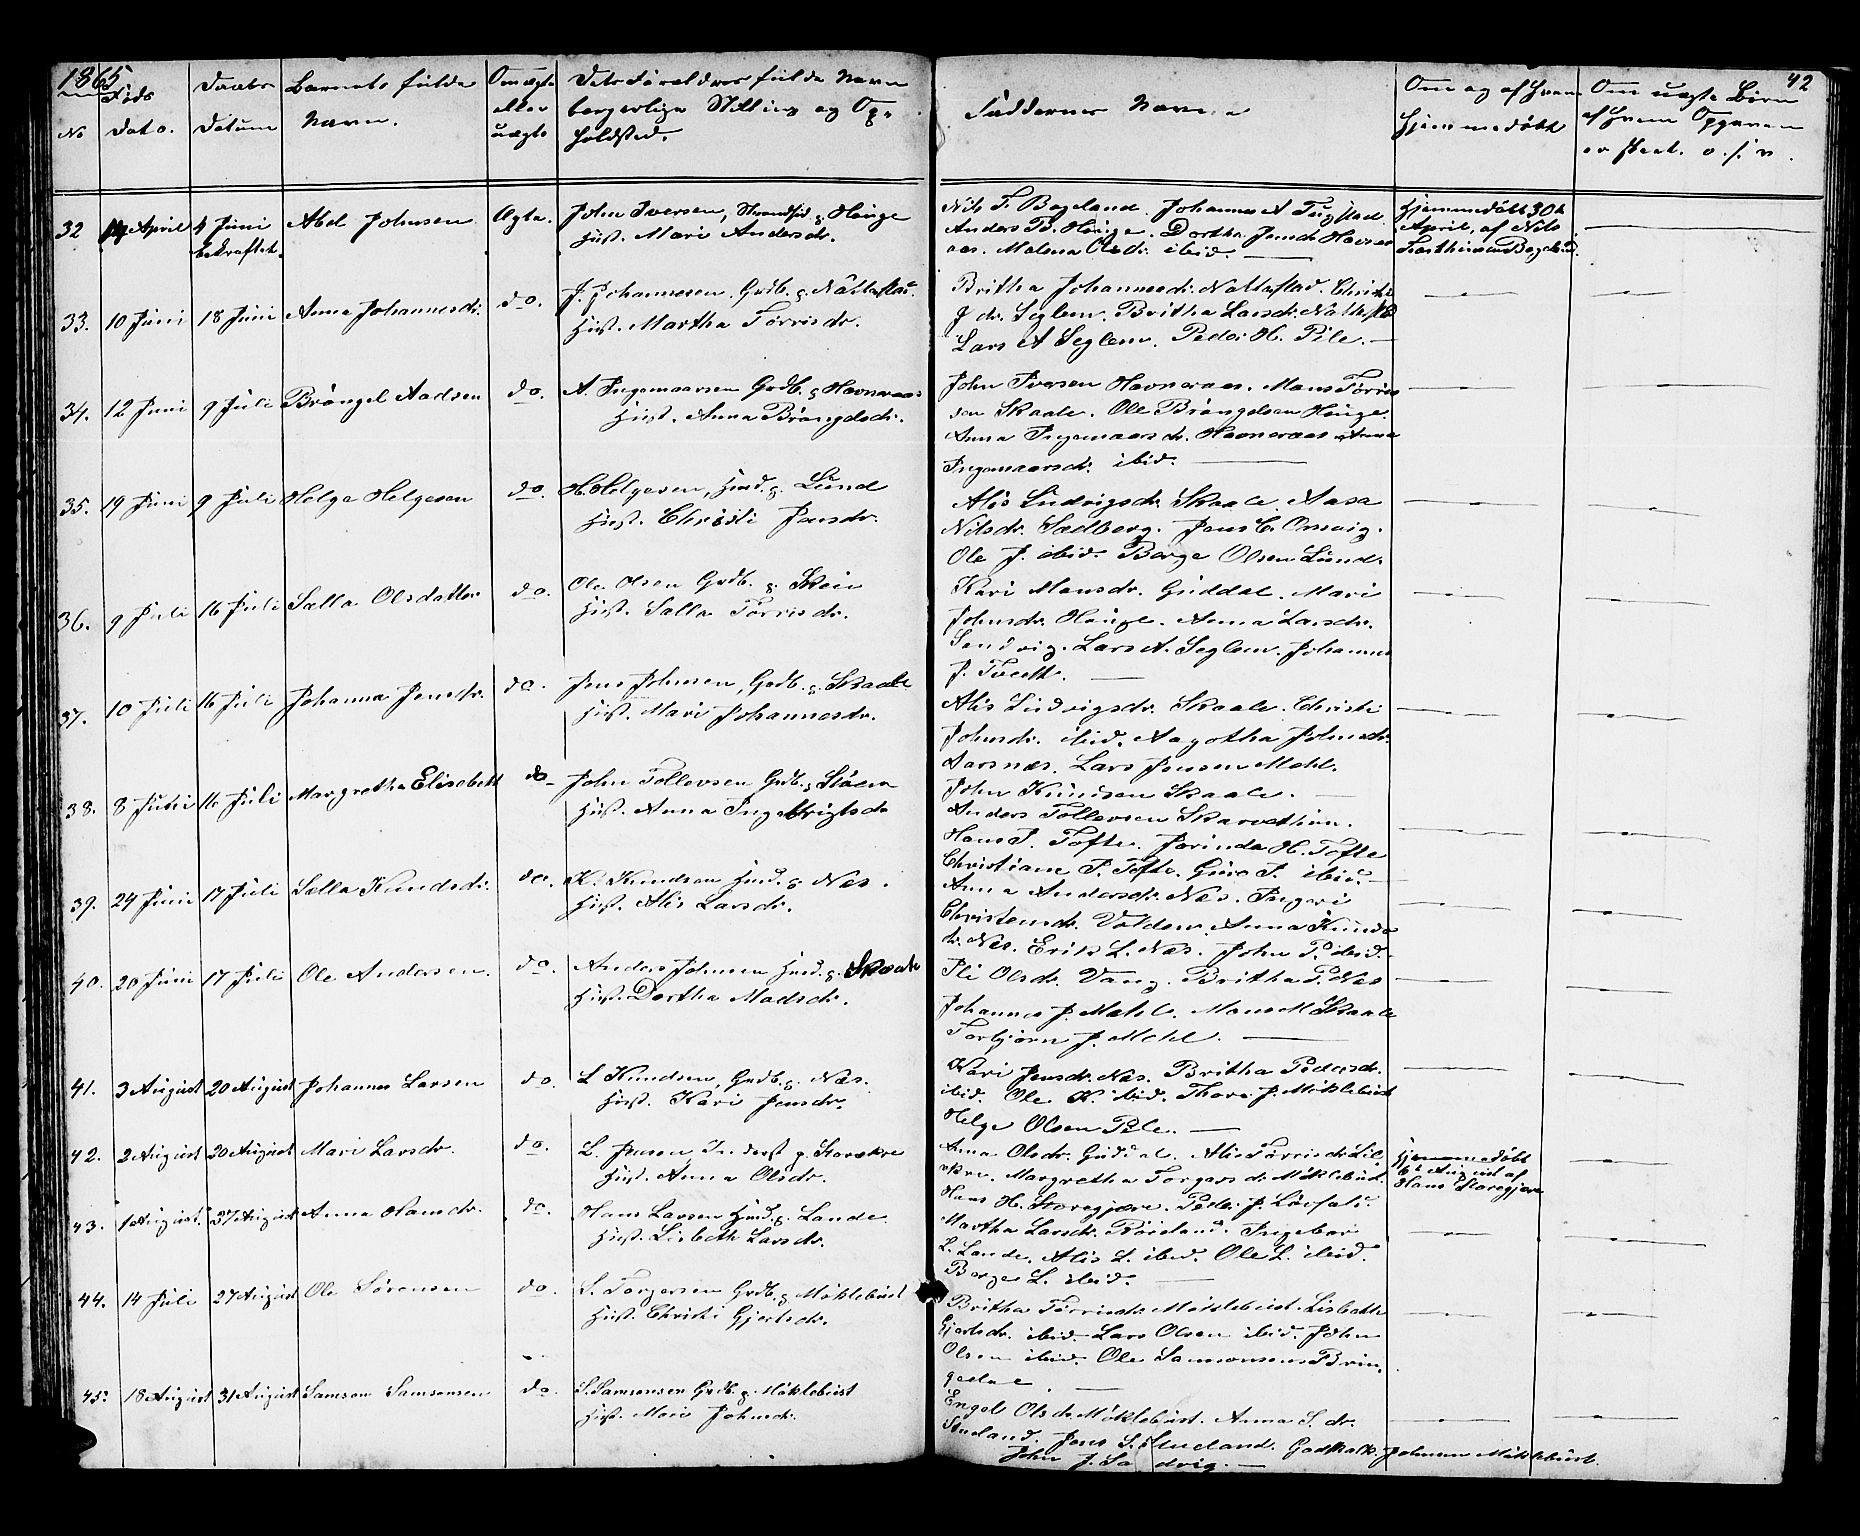 1865
42
No
Föds Dato.
Daabs Datum
Barnets fulde Navn.
Om ægte eller uægte
Dets Forældres fulde Navn borgerlige Stilling og Opholdsted.
Faddernes Navne
Om og af hvem hjemmedöbt
Om uægte Börn af hvem Opgaven er skeet. o. s. v.
32 April 4 Juni Abel Johnsen Ægte. John Iversen, Strandsid. g. Höuge
bekræftet. Hust. Mari Andersdr.
Nils T. Bageland. Johannes A
Anders B. Höuge. Dorthea Jensdr.
Malena Olsdr. ibid.
Hjemmedöbt 30te
April, af Nils
33. 10 Juni 18 Juni Anna Johannesdr. do. J. Johannesen. Grdb. g. Nättestad.
Hust. Martha Torrisdr.
Britha Johannesdr. Nattestad. Christi
J dr. Seglem. Britha Larsdr.
Lars A Seglem. Peder H. Pile.
34. 12 Juni 9 Juli Bröngel Aadsen do. A. Ingemaarsen Grdb. g Havneraas
Hust. Anna Bröngelsdr.
John Iversen Havneraas. Mons Torris
sen Skaale. Ole Bröngelsen Höuge.
Anna Ingemaarsdr. Havneraas Anna
Ingemaarsdr. ibid.
35. 19 Juni 9 Juli Helge Helgesen do. H. Helgesen, Husd. g. Lund
Hust. Christi Jensdr.
Alis Ludvigsdr. Skaale. Aasa
Nilsdr. Sædberg. Jens C. Omvig.
Ole J. ibid. Börge Olsen Lund.
36. 9 Juli 16 Juli Sælla Olsdatter do. Ole Olsen Grdb. g. Skeie
Hust. Salla Torrisdr.
Kari Monsdr. Guddal. Mari
Johnsdr. Höuge. Anna Larsdr.
Sandvig. Lars A. Seglem. Johannes
J. Tvedt.
37. 10 Juli 16 Juli Johanna Jensdr. do. Jens Johnsen, Grdb. g. Skaale
Hust. Mari Johannesdr.
Alis Ludvigsdr. Skaale. Christi
Johnsdr. ibid. Aagotha Johnsdr.
Aarsnes. Lars Jensen Mehl.
John Knudsen Skaale.
38. 8 Juni 16 Juli Margretha Elisabett do John Tollevsen Grdb. g
Hust. Anna Ingebrigtsdr
Anders Tollevsen
Hans P. Tofte. Jorinda H. Tofte
Christiane P. Tofte. Guro P. ibid.
39. 24 Juni 17 Juli Sælla Knudsdr. do. K. Knudsen Husd. g. Nes.
Hust. Alis Larsdr.
Anna Andersdr. Nes. Ingeri
Christensdr. Volden. Anna Knuds
dr. Nes. Erik L. Nes. John P. ibid.
40. 20 Juni 17 Juli Ole Andersen. do. Anders Johnsen Husd. g. Skaale
Hust. Dorthea Madsdr.
Eli Olsdr. Vang. Britha P. Nes
Johannes J. Mehl. Mons M Skaale
Torbjörn J. Mehl.
41. 3 August 20 August Johannes Larsen do. L Knudsen, Grdb. g. Nes.
Hust. Kari Jensdr.
Kari Jensdr. Nes. Britha Pedersdr.
ibid. Ole K. ibid. Thore J. Möklebust
Helge Olsen Pile.
42. 2 August 20 August Mari Larsdr. do. L. Jensen Inderst g.
Hust. Anna Olsdr.
Anna Olsdr. Guddal. Alis Torrisdr Lil
Margretha Torgersdr. Möklebust.
Hans H. Storegjere. Peder J.
Hjemmedöbt
6te August af
Hans Storegjere
43. 1 August. 27 August Anna Hansdr. do. Hans Larsen Husd. g. Lande
Hust. Lisbeth Larsdr.
Martha Larsdr. Ingebor
L. Lande. Alis L. ibid. Ole L. ibid.
Börge L. ibid.
44. 14 Juli 27 August Ole Sörensen do. S. Torgersen Grdb. g Möklebust
Hust. Christi Gjertsdr.
Britha Torrisdr. Möklebust. Lisbeth
Gjertsdr. ibid. Lars Olsen ibid. John
Olsen ibid. Ole Samsonsen Brin,
gedal.
45. 18 August 31 August Samson Samsonsen do. S. Samsonsen Grdb. g. Möklebust
Hust. Mari Johnsdr.
Engel Olsdr Möklebust. Anna S. dr.
Studland. Jens S. Studland. Godskalk Johnsen Möklebust.
John J. Sandvig.